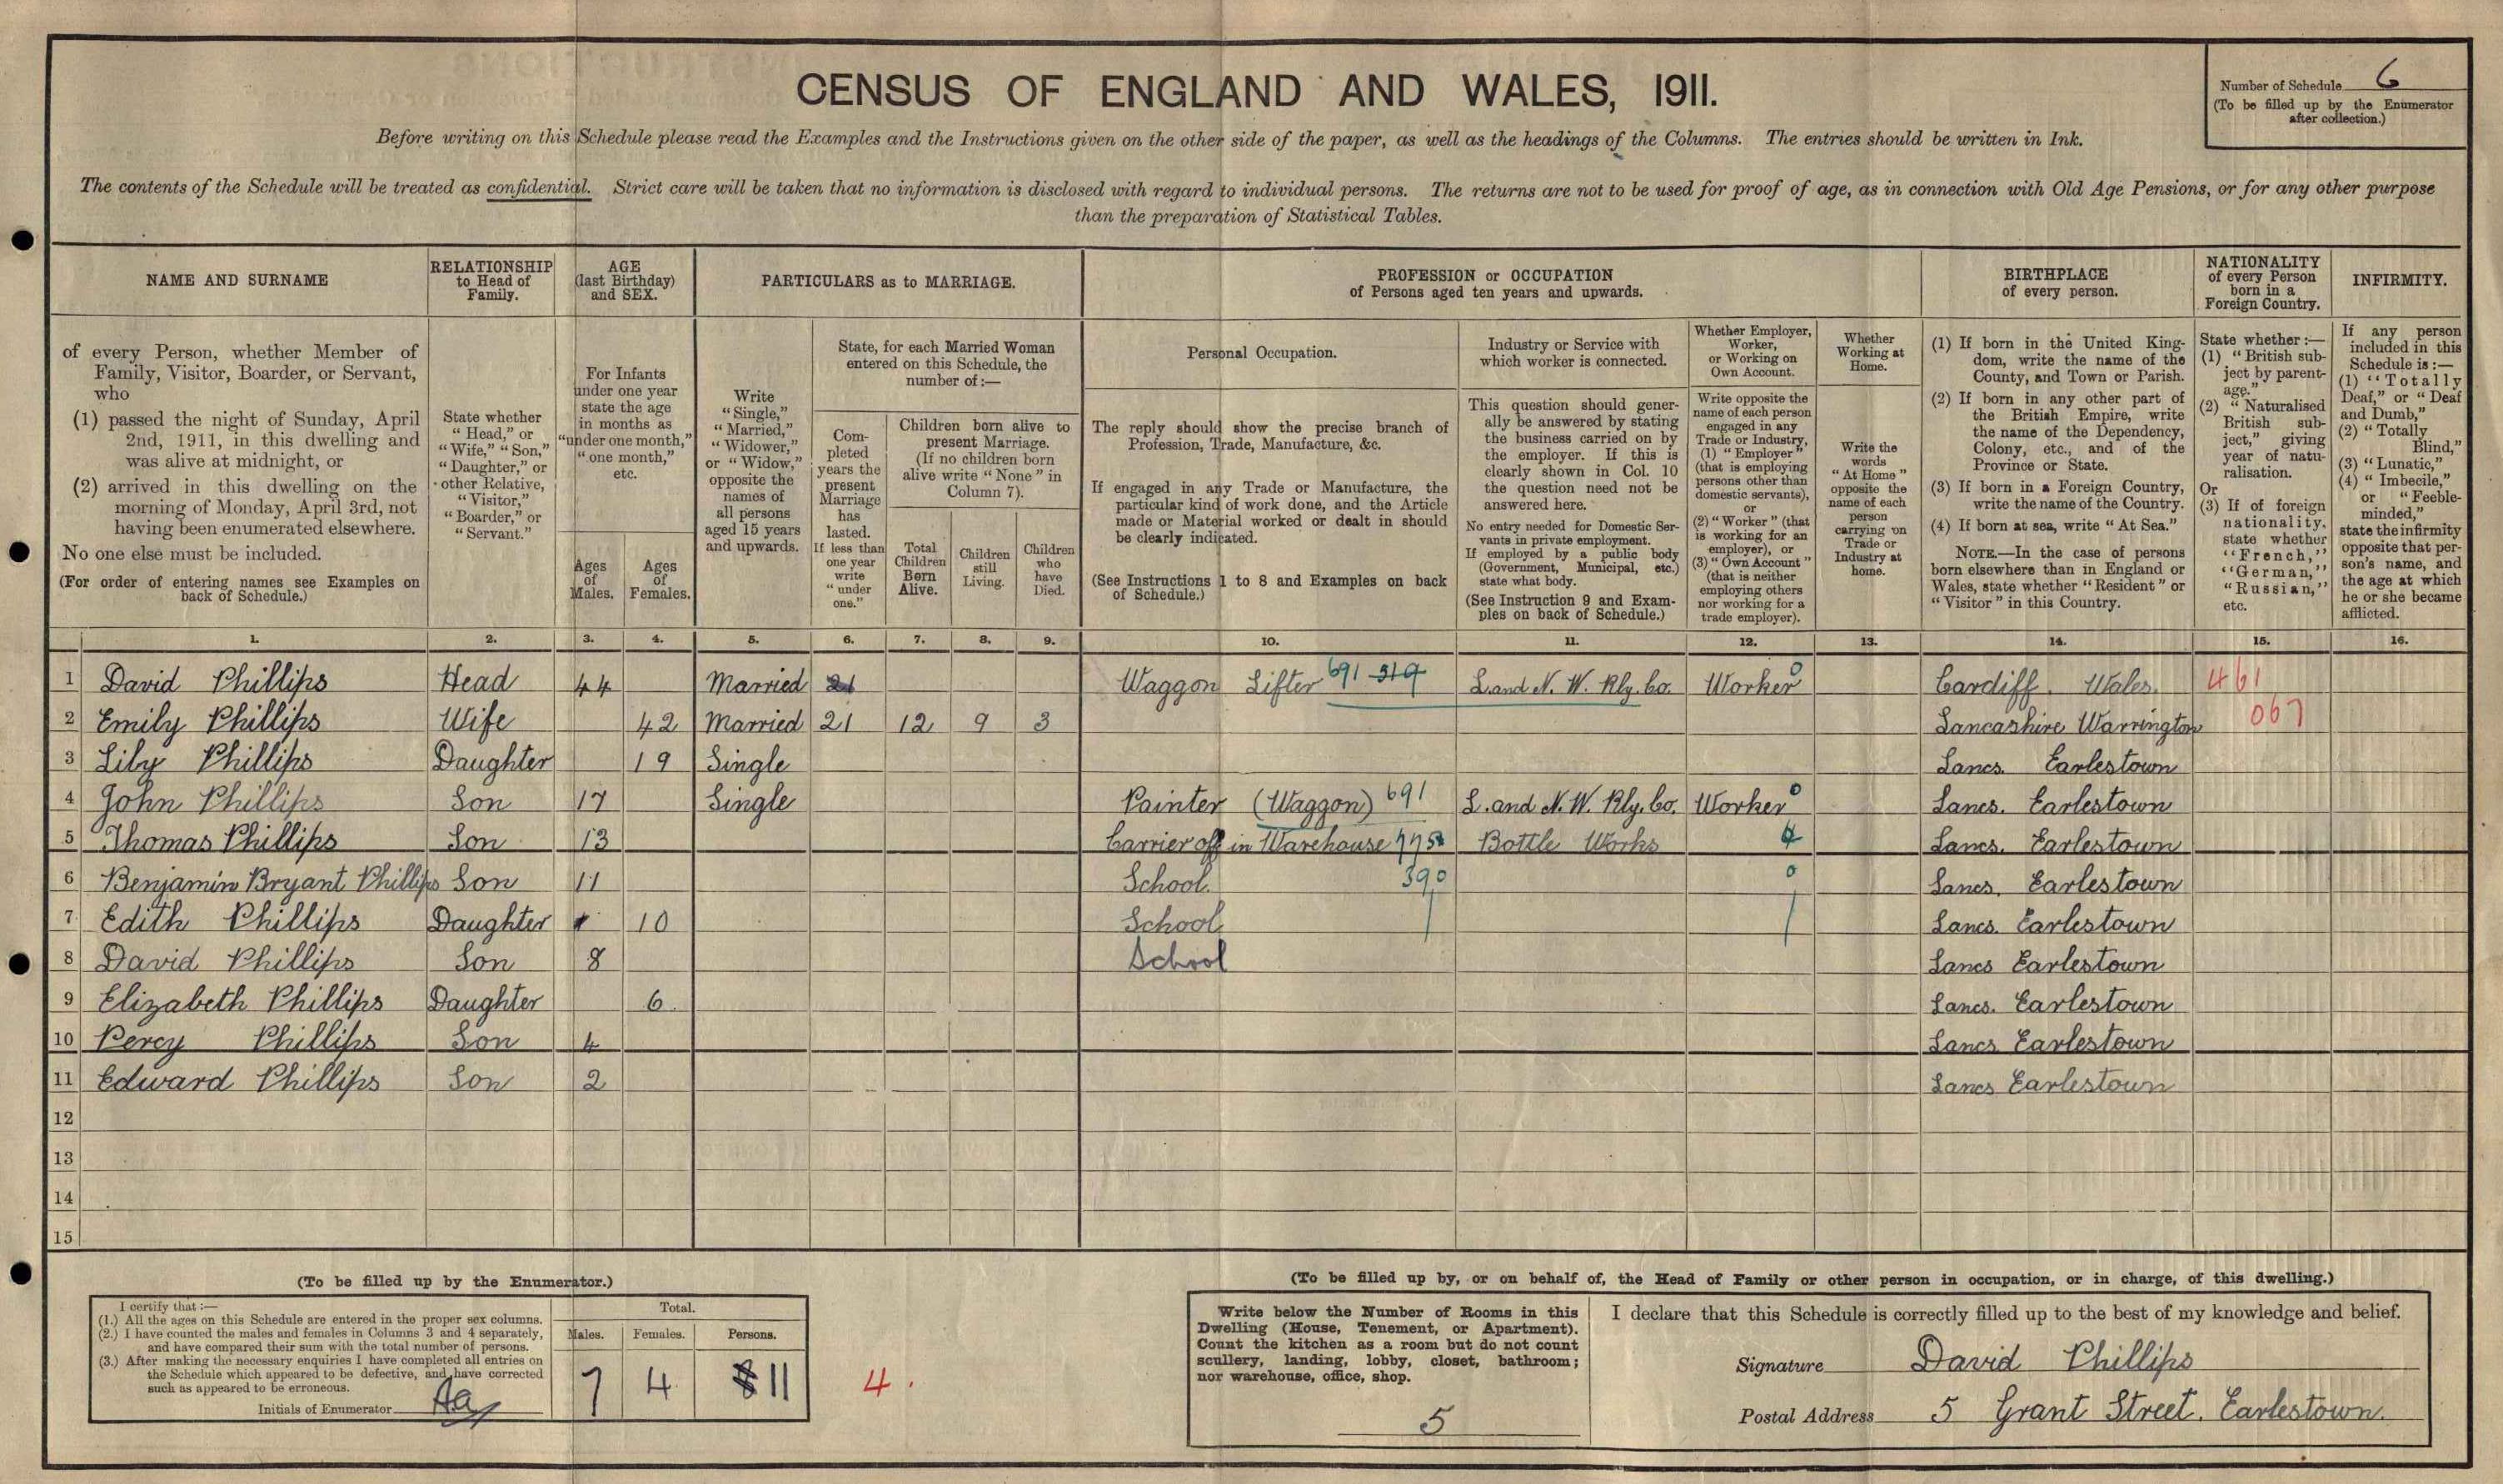 CENSUS OF ENGLAND AND WALES, 1911.
Number of Schedule 6
(To be filled up by the Enumerator
after collection.)
Before writing on this Schedule please read the Examples and the Instructions given on the other side of the paper, as well as the headings of the Columns. The entries should be written in Ink.
The contents of the Schedule will be treated as confidential. Strict care will be taken that no information is disclosed with regard to individual persons. The returns are not to be used for proof of age, as in connection with Old Age Pensions, or for any other purpose
than the preparation of Statistical Tables.
NAME AND SURNAME
RELATIONSHIP
to Head of
Family.
AGE
(last Birthday)
and SEX.
PARTICULARS as to MARRIAGE.
PROFESSION or OCCUPATION
of Persons aged ten years and upwards.
BIRTHPLACE
of every person.
NATIONALITY
of every Person
born in a
Foreign Country.
INFIRMITY.
of every Person, whether Member of
Family, Visitor, Boarder, or Servant,
who
(1) passed the night of Sunday, April
2nd, 1911, in this dwelling and
was alive at midnight, or
(2) arrived in this dwelling on the
morning of Monday, April 3rd, not
having been enumerated elsewhere.
No one else must be included.
(For order of entering names see Examples on
back of Schedule.)
State whether
"Head," or
"Wife," "Son,"
"Daughter," or
other Relative,
"Visitor,"
"Boarder," or
"Servant."
For Infants
under one year
state the age
in months as
"under one month,"
"one month,"
etc.
Ages
of
Males.
Ages
of
Females.
Write
"Single,"
"Married,"
"Widower,"
or "Widow,"
opposite the
names of
all persons
aged 15 years
and upwards.
State, for each Married Woman
entered on this Schedule, the
number of:—
Com-
pleted
years the
present
Marriage
has
lasted.
If less than
one year
write
"under
one."
Children born alive to
present Marriage.
(If no children born
alive write "None" in
Column 7).
Total
Children
Born
Alive.
Children
still
Living.
Children
who
have
Died.
Personal Occupation.
The reply should show the precise branch of
Profession, Trade, Manufacture, &c.
If engaged in any Trade or Manufacture, the
particular kind of work done, and the Article
made or Material worked or dealt in should
be clearly indicated.
(See Instructions 1 to 8 and Examples on back
of Schedule.)
Industry or Service with
which worker is connected.
This question should gener-
ally be answered by stating
the business carried on by
the employer. If this is
clearly shown in Col. 10
the question need not be
answered here.
No entry needed for Domestic Ser-
vants in private employment.
If employed by a public body
(Government, Municipal, etc.)
state what body.
(See Instruction 9 and Exam-
ples on back of Schedule.)
Whether Employer,
Worker,
or Working on
Own Account.
Write opposite the
name of each person
engaged in any
Trade or Industry,
(1) "Employer"
(that is employing
persons other than
domestic servants),
or
(2) "Worker" (that
is working for an
employer), or
(3) "Own Account"
(that is neither
employing others
nor working for a
trade employer).
Whether
Working at
Home.
Write the
words
"At Home"
opposite the
name of each
person
carrying on
Trade or
Industry at
home.
(1) If born in the United King-
dom, write the name of the
County, and Town or Parish.
(2) If born in any other part of
the British Empire, write
the name of the Dependency,
Colony, etc., and of the
Province or State.
(3) If born in a Foreign Country,
write the name of the Country.
(4) If born at sea, write "At Sea."
NOTE.—In the case of persons
born elsewhere than in England or
Wales, state whether "Resident" or
"Visitor" in this Country.
State whether:—
(1) "British sub-
ject by parent-
age."
(2) "Naturalised
British sub-
ject," giving
year of natu-
ralisation.
Or
(3) If of foreign
nationality,
state whether
"French,"
"German,"
"Russian,"
etc.
If any person
included in this
Schedule is:—
(1) "Totally
Deaf," or "Deaf
and Dumb,"
(2) "Totally
Blind,"
(3) "Lunatic,"
(4) "Imbecile,"
or "Feeble-
minded,"
state the infirmity
opposite that per-
son's name, and
the age at which
he or she became
afflicted.
1. 2. 3. 4. 5. 6. 7. 8. 9. 10. 11. 12. 13. 14. 15. 16.
1 David Phillips Head 44 Married 21 Waggon Lifter 691 519 L. and N. W. Rly. Co. Worker 0 Cardiff. Wales. 461
2 Emily Phillips Wife 42 Married 21 12 9 3 Lancashire Warrington 067
3 Lily Phillips Daughter 19 Single Lancs. Earlestown
4 John Phillips Son 17 Single Painter (Waggon) 691 L. and N. W. Rly. Co. Worker 0 Lancs. Earlestown
5 Thomas Phillips Son 13 Carrier off in Warehouse Bottle Works Lancs. Earlestown
6 Benjamin Bryant Phillips Son 11 School. 390 0 Lancs. Earlestown
7 Edith Phillips Daughter 10 School Lancs. Earlestown
8 David Phillips Son 8 School Lancs Earlestown
9 Elizabeth Phillips Daughter 6 Lancs. Earlestown
10 Percy Phillips Son 4 Lancs Earlestown
11 Edward Phillips Son 2 Lancs Earlestown
12
13
14
15
(To be filled up by the Enumerator.)
I certify that:—
(1.) All the ages on this Schedule are entered in the proper sex columns.
(2.) I have counted the males and females in Columns 3 and 4 separately,
and have compared their sum with the total number of persons.
(3.) After making the necessary enquiries I have completed all entries on
the Schedule which appeared to be defective, and have corrected
such as appeared to be erroneous.
Initials of Enumerator
Total.
Males. Females. Persons.
7 4 11
4.
(To be filled up by, or on behalf of, the Head of Family or other person in occupation, or in charge, of this dwelling.)
Write below the Number of Rooms in this
Dwelling (House, Tenement, or Apartment).
Count the kitchen as a room but do not count
scullery, landing, lobby, closet, bathroom;
nor warehouse, office, shop.
5
I declare that this Schedule is correctly filled up to the best of my knowledge and belief.
Signature David Phillips
Postal Address 5 Grant Street. Earlestown.